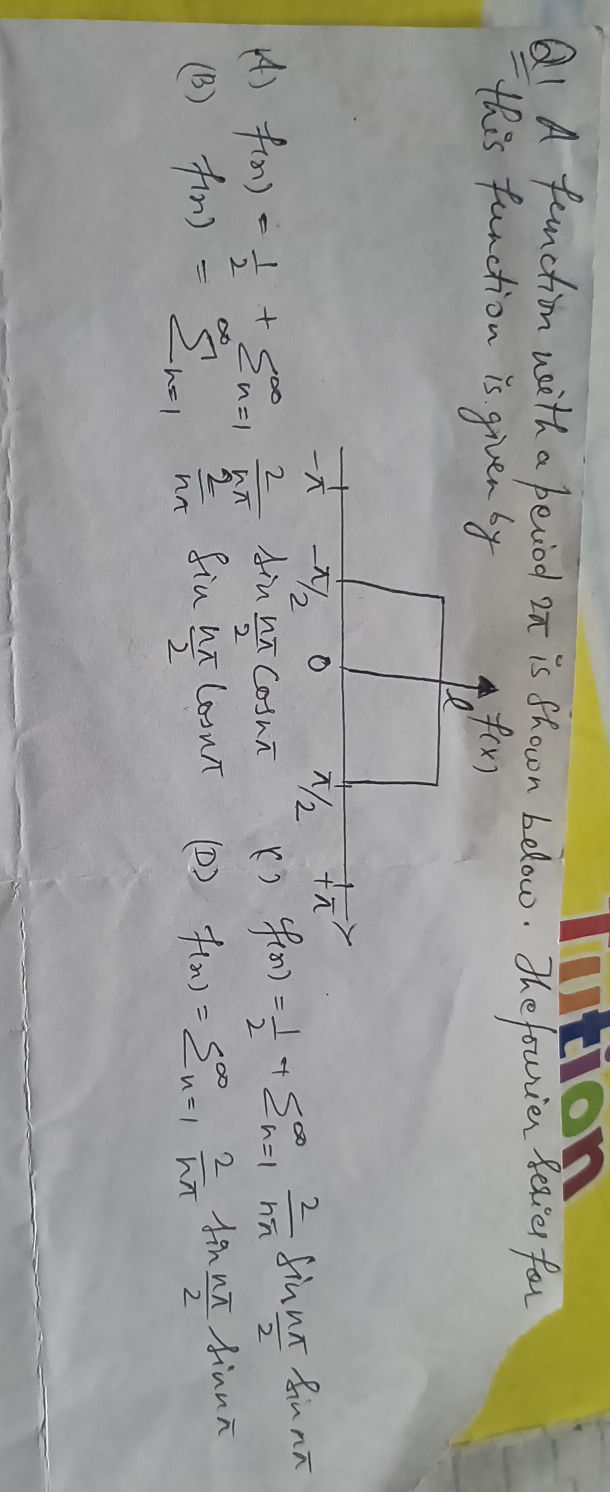 Tution
Q1 A function with a period 2π is shown below. The fourier series for
this function is given by
f(x)
l
-π -π/2 0 π/2 +π
(A) f(x) = 1/2 + ∑_{n=1}^{∞} 2/nπ sin nπ/2 cosnπ
(C) f(x) = 1/2 + ∑_{n=1}^{∞} 2/nπ sin nπ/2 sin nπ
(B) f(x) = ∑_{n=1}^{∞} 2/nπ sin nπ/2 cosnπ
(D) f(x) = ∑_{n=1}^{∞} 2/nπ sin nπ/2 sinnπ